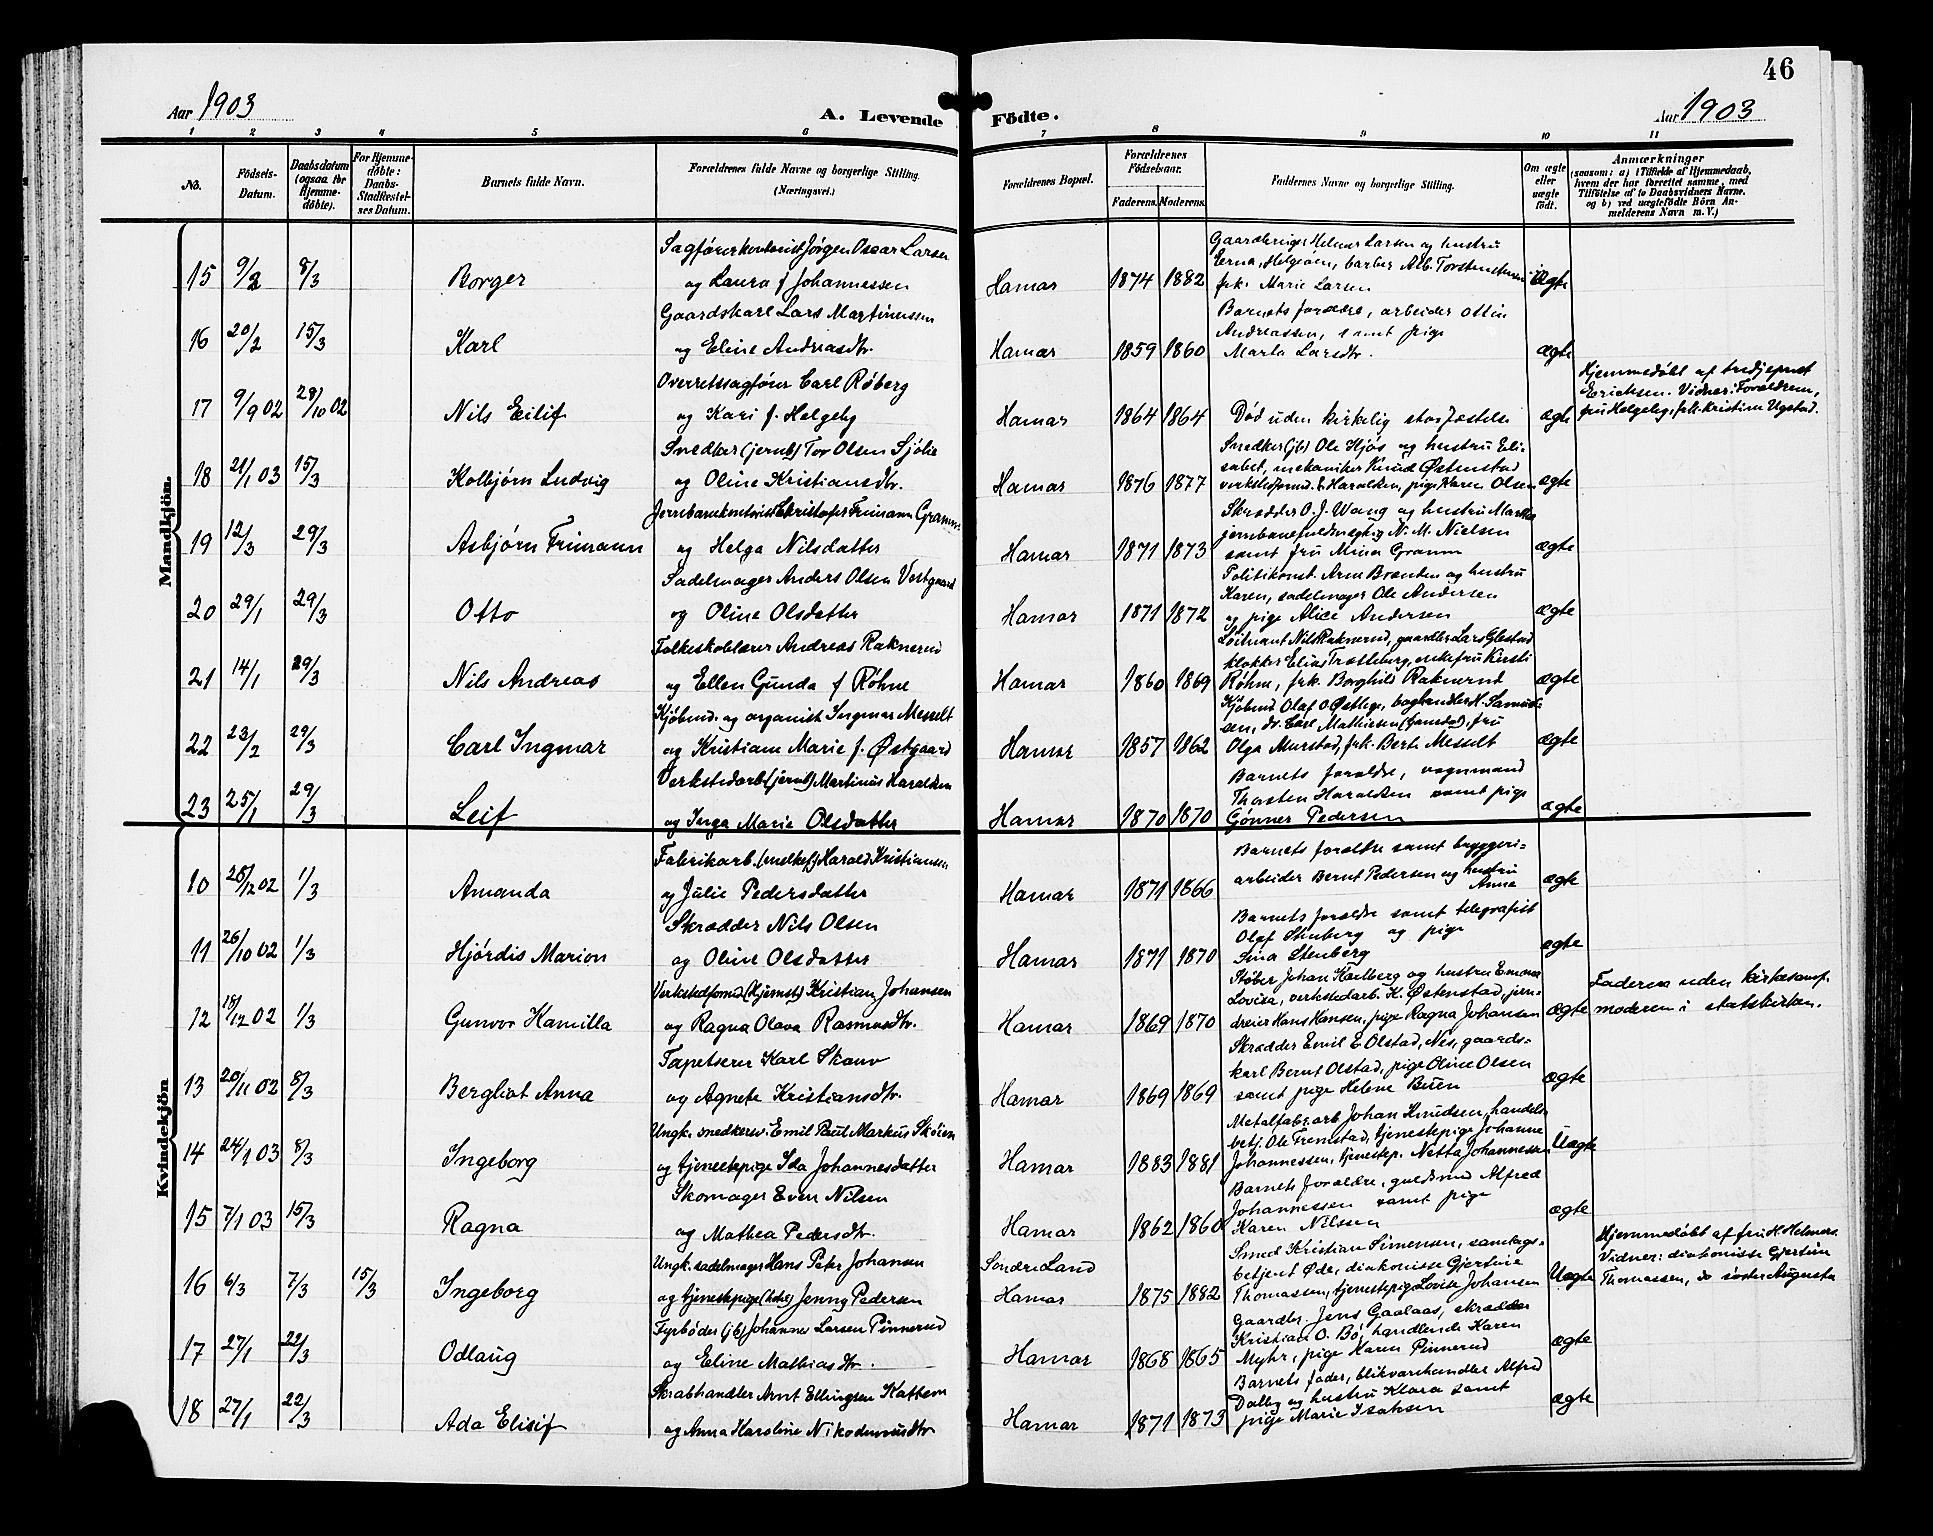 46
Aar 1903
A. Levende Fødte.
Aar 1903
1 2 3 4 5 6 7 8 9 10 11
No.
Födsels-
Datum.
Daabsdatum
(ogsaa for
Hjemme-
döbte).
For Hjemme-
döbte:
Daabs-
Stadfæstel-
ses Datum.
Barnets fulde Navn.
Forældrenes fulde Navne og borgerlige Stilling.
(Næringsvei.)
Forældrenes Bopæl.
Forældrenes
Födselsaar.
Faderens. Moderens.
Faddernes Navne og borgerlige Stilling.
Om ægte
eller
uægte
födt.
Anmærkninger
(saasom: a) i Tilfælde af Hjemmedaab,
hvem der har forrettet samme, med
Tilföielse af to Daabsvidners Navne,
og b) ved uægtefödte Börn An-
melderens Navn m. V.)
Mandkjön.
Sagförerkontorist Jörgen Oscar Larsen
15 9/2 8/3 Borger og Laura f Johannessen Hamar 1874 1882
Gaardbruger Helmer Larsen og hustru
Erna, Helgøen, barber Alb. Torstensen
frk. Marie Larsen ægte
Gaardskarl Lars Martinussen
16 20/2 15/3 Karl og Eline Andreasdtr. Hamar 1859 1860
Barnets forældre, arbeider Ottin
Andreassen, samt pige
Marta Larsdtr. ægte
Overretssagförer Carl Röberg
17 9/9 02 29/10 02 Nils Eilif og Kari f. Helgeby Hamar 1864 1864
Död uden kirkelig stadfæstelse ægte
Hjemmedöbt af tredjeprest
Erichsen. Vidner: Forældrene,
fru Helgeby, frk. Kristine Ugstad.
Snedker (jernb) Tor Olsen Sjölie
18 21/1 03 15/3 Kolbjørn Ludvig og Oline Kristiansdtr. Hamar 1876 1877
Snedker (jb) Ole Hjøs og hustru Eli-
sabet, mekaniker Knud Østenstad
verkstedformd. E Haraldsen, pige Karen Olsen ægte
Jernbanekontorist Christofer Frimann Gramm
19 12/3 29/3 Asbjørn Frimann og Helga Nilsdatter Hamar 1871 1873
Skrædder O. J. Wang og hustru Martha
jernbanefuldmægtig N. M. Nielsen
samt fru Mina Gramm ægte
Sadelmager Anders Olsen Vestgaard
20 29/1 29/3 Otto og Oline Olsdatter Hamar 1871 1872
Politikonst. Arne Brenten og hustru
Karen, sadelmager Ole Andersen
og pige Alice Andersen ægte
Folkeskolelærer Andreas Raknerud
21 14/1 29/3 Nils Andreas og Ellen Gunda f Røhne Hamar 1860 1869
Löitnant Nils Raknerud, gaardbr. Lars Glestad
klokker Elias Trætteberg, enkefru Kirsti
Røhne, frk. Borghild Raknerud ægte
Kjøbmd. og organist Ingmar Messelt
22 23/2 29/3 Carl Ingmar og Kristiane Marie f. Østgaard Hamar 1857 1862
Kjøbmd Olaf O Østlege, boghandler H. Samuel-
sen, dr. Carl Mathiesen (Gausdal), fru
Olga Murstad, frk. Berta Messelt ægte
Verkstedarb. (jernb) Martinus Haraldsen
23 25/1 29/3 Leif og Inga Marie Olsdatter Hamar 1870 1870
Barnets forældre, vognmand
Thorsten Haraldsen samt pige
Gønner Pedersen ægte
Kvindekjön
Fabrikarb. (melkef) Harald Kristiansen
10 26/12 02 1/3 Amanda og Julie Pedersdatter Hamar 1871 1866
Barnets forældre samt bryggeri-
arbeider Bernt Pedersen og hustru
Anna ægte
Skrædder Nils Olsen
11 26/10 02 1/3 Hjördis Marion og Oline Olsdatter Hamar 1871 1870
Barnets forældre samt telegrafist
Olaf Stenberg og pige
Sina Stenberg ægte
Verkstedformd (Hjemst) Kristian Johansen
12 18/12 02 1/3 Gunvor Kamilla og Ragna Olava Rasmusdtr. Hamar 1869 1870
Støber Johan Karlberg og hustru Emma
Lovisa, verkstedarb. K. Østenstad, jern-
dreier Hans Hansen, pige Ragna Johansen ægte
Faderen uden kirkesamf.
moderen i statskirken.
Tapetserer Karl Skauv
13 20/11 02 8/3 Bergliot Anna og Agnete Kristiansdtr. Hamar 1869 1869
Skrædder Emil E Olstad, Nes, gaards-
karl Bernt Olstad, pige Oline Olsen
samt pige Helene Buen ægte
Ungk. snedkersv. Emil Paul Markus Skøien
14 24/1 03 8/3 Ingeborg og tjenestepige Ida Johannesdatter Hamar 1883 1881
Metalfabr.arb Johan Knudsen, handels-
betj. Ole Fremstad, tjenestepige Johanne
Johannessen, tjenestep. Netta Johannessen Uægte
Skomager Even Nilsen
15 7/1 03 15/3 Ragna og Mathea Pedersdtr. Hamar 1862 1860
Barnets forældre, guldsmed Alfred
Johannessen samt pige
Karen Nilssen ægte
Ungk. sadelmager Hans Peter Johansen Søndre Land
16 6/3 7/3 15/3 Ingeborg og tjenestepige Jenny Pedersen Hamar 1875 1882
Smed Kristian Simensen, samlags-
betjent Øde, diakonisse Gjertine
Thomassen, tjenestepige Lovise Johansen Uægte
Hjemmedöbt af fru H. Helmers.
Vidner: diakonisse Gjertine
Thomassen, do søster Augusta
Fyrbøder (jb) Johannes Larsen Pinnerud
17 27/1 22/3 Odlaug og Eline Mathiasdtr. Hamar 1868 1865
Gaardbr. Jens Gaalaas, skrædder
Kristian O. Bö, handlende Karen
Myhr, pige Karen Pinnerud ægte
Skrabhandler Arnt Ellingsen Kattem
18 27/1 22/3 Ada Elisif og Anna Karoline Nikodemusdtr Hamar 1871 1873
Barnets fader, blikvarehandler Alfred
Dalby og hustru Klara samt
pige Marie Isaksen ægte